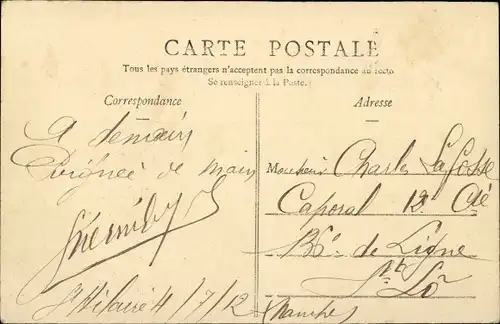 CARTE POSTALE
Tous les pays étrangers n'acceptent pas la correspondance au recto
Se renseigner à la Poste.
Correspondance
A demain
Poignée de main
St Hilaire 4/7/12
Adresse
Monsieur Charles Lafosse
Caporal 12e Cie
de Ligne
St Lô
(Manche)